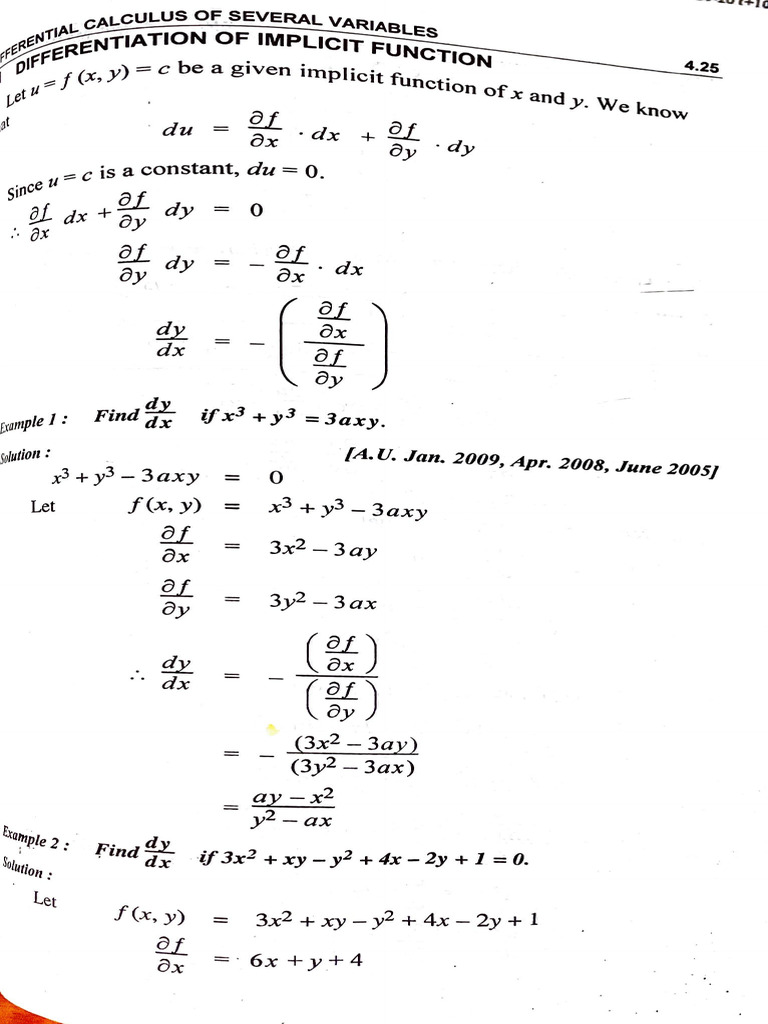 FFERENTIAL CALCULUS OF SEVERAL VARIABLES
DIFFERENTIATION OF IMPLICIT FUNCTION 4.25
Let u = f (x, y) = c be a given implicit function of x and y. We know
at
du = ∂f/∂x · dx + ∂f/∂y · dy
Since u = c is a constant, du = 0.
∴ ∂f/∂x dx + ∂f/∂y dy = 0
∂f/∂y dy = − ∂f/∂x · dx
dy/dx = − ( (∂f/∂x) / (∂f/∂y) )
Example 1 : Find dy/dx if x³ + y³ = 3axy.
[A.U. Jan. 2009, Apr. 2008, June 2005]
Solution :
x³ + y³ − 3axy = 0
Let f (x, y) = x³ + y³ − 3axy
∂f/∂x = 3x² − 3ay
∂f/∂y = 3y² − 3ax
∴ dy/dx = − (∂f/∂x) / (∂f/∂y)
= − (3x² − 3ay) / (3y² − 3ax)
= (ay − x²) / (y² − ax)
Example 2 : Find dy/dx if 3x² + xy − y² + 4x − 2y + 1 = 0.
Solution :
Let
f (x, y) = 3x² + xy − y² + 4x − 2y + 1
∂f/∂x = 6x + y + 4